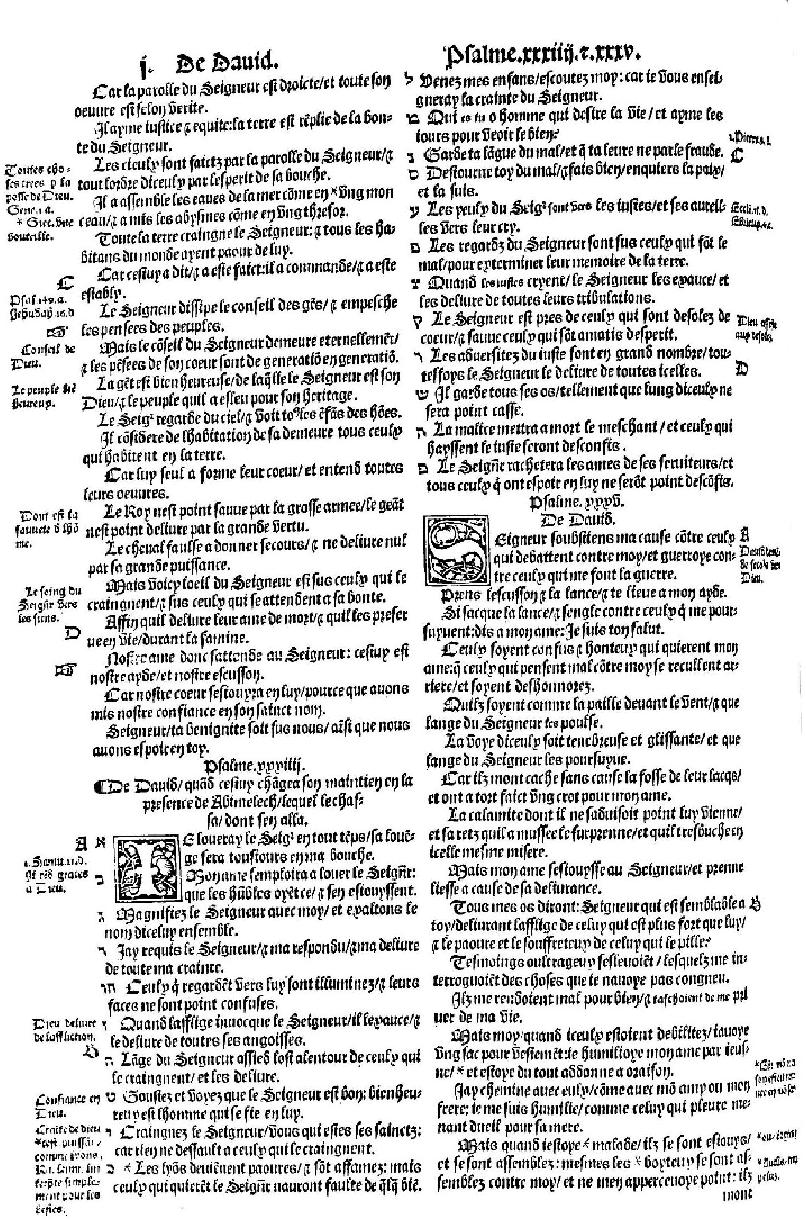 j. De David.
Psalme.xxxiiij.&.xxxv.
Car la parolle du Seigneur est droicte/et toute son
oeuvre est selon verite.
Il ayme justice & equite: la terre est rēplie de la bon-
te du Seigneur.
Les cieulx sont faictz par la parolle du Seigneur/&
tout lordre diceulx par lesperit de sa bouche.
Il a assemble les eaues de la mer cōme en *vng mon
ceau/& a mis les abysmes cōme en vng thresor.
Toute la terre craingne le Seigneur: & tous les ha-
bitans du monde ayent paour de luy.
Car cestuy a dit/& a este faict: il a commande/& a este
estably.
Le Seigneur dissipe le conseil des gēs/& empesche
les pensees des peuples.
Mais le cōseil du Seigneur demeure eternellemēt/
& les pēsees de son coeur sont de generatiō en generatiō.
La gēt est bien heureuse/de laq̄lle le Seigneur est son
Dieu/& le peuple quil a esleu pour son heritage.
Le Seigr regarde du ciel/& voit tous les ēfās des hōes.
Il cōsidere de lhabitation de sa demeure tous ceulx
qui habitent en la terre.
Car luy seul a forme leur coeur/et entend toutes
leurs oeuvres.
Le Roy nest point sauue par la grosse armee/le geāt
nest point deliure par la grande vertu.
Le cheual faulse a donner secours/& ne deliure nul
par sa grande puissance.
Mais voicy loeil du Seigneur est sus ceulx qui le
craingnent/& sus ceulx qui se attendent a sa bonte.
Affin quil deliure leur ame de mort/& quil les preser
ue en vie/durant la famine.
Nostre ame donc sattende au Seigneur: cestuy est
nostre ayde/et nostre escusson.
Car nostre coeur sesiouyra en luy/pource que auons
mis nostre confiance en son sainct nom.
Seigneur/ta benignite soit sus nous/aīsi que nous
auons espoir en toy.
Psalme.xxxiiij.
¶De David/quād cestuy chāgea son maintien en la
presence de Abimelech/lequel le chas-
sa/dont sen alla.
IE loueray le Seigr en tout tēps/sa louē-
ge sera tousiours en ma bouche.
Mon ame semploira a louer le Seigr̄:
que les hūbles oyēt ce/& sen esiouyssent.
Magnifiez le Seigneur auec moy/et exaltons le
nom diceluy ensemble.
Jay requis le Seigneur/& ma respondu/& ma deliure
de toute ma crainte.
Ceulx q̄ regardēt vers luy sont illuminez/& leurs
faces ne sont point confuses.
Quand lafflige inuocque le Seigneur/il lexauce/&
le deliure de toutes ses angoisses.
Lāge du Seigneur assied lost alentour de ceulx qui
le craingnent/et les deliure.
Goustez et voyez que le Seigneur est bon: bienheu-
reux est lhomme qui se fie en luy.
Craingnez le Seigneur/vous qui estes ses sainctz:
car rien ne deffault a ceulx qui le craingnent.
* Les lyōs deuiēnent paoures/& sōt affamez: mais
ceulx qui quierēt le Seigr̄ nauront faulte de q̄lq̄ biē.
Toutes cho-
ses crees p̄ la
Dieu.
Psal.149.a.
Conseil de
Dieu.
Le peuple biē
heureux.
Dont est la
sauuete d lhō
me.
Le seing du
Seigr̄ vers
les siens.
Il rēd graces
a Dieu.
Dieu deliure
de laffliction.
Confiance en
Dieu.
Venez mes enfans/escoutez moy: car ie vous ensei-
gneray la crainte du Seigneur.
Qui es tu o homme qui desire la vie/et ayme les
iours pour veoir le bien?
Garde ta lāgue du mal/et q̄ ta leure ne parle fraude.
Destourne toy du mal/& fais bien/enquiers la paix/
et la suis.
Les yeulx du Seigr sont vers les iustes/et ses aureil-
les vers leur cry.
Les regardz du Seigneur sont sus ceulx qui fōt le
mal/pour exterminer leur memoire de la terre.
Quand les iustes cryent/le Seigneur les exauce/et
les deliure de toutes leurs tribulations.
Le Seigneur est pres de ceulx qui sont desolez de
coeur/& sauue ceulx qui sōt amatis desperit.
Les aduersitez du iuste sont en grand nombre/tou-
tessoys le Seigneur le deliure de toutes icelles.
Il garde tous ses os/tellement que lung diceulx ne
sera point casse.
La malice mettra a mort le meschant/et ceulx qui
hayssent le iuste seront desconfis.
Le Seigr̄e rachetera les ames de ses seruiteurs/et
tous ceulx q̄ ont espoir en luy ne serōt point descōfis.
Psalme.xxxv.
De David.
SEigneur soubstiens ma cause cōtre ceulx
qui debattent contre moy/et guerroye con-
tre ceulx qui me font la guerre.
Prens lescusson/& la lance/& te lieue a mon ayde.
Si sacque la lance/& sengle contre ceulx q̄ me pour-
suyuent: dis a mon ame: Je suis ton salut.
Ceulx soyent confus & honteux qui quierent mon
ame: q̄ ceulx qui pensent mal cōtre moy se recullent ar-
riere/et soyent deshonnorez.
Quilz soyent comme la paille deuant le vent/& que
lange du Seigneur les poulse.
La voye diceulx soit tenebreuse et glissante/et que
lange du Seigneur les poursuyue.
Car ilz mont cache sans cause la fosse de leur lacqs/
et ont a tort faict vng crot pour mon ame.
La calamite dont il ne sadvisoit point luy vienne/
et sa retz quil a mussee le surprenne/et quil tresbuche en
icelle mesme misere.
Mais mon ame sesiouysse au Seigneur/et prenne
liesse a cause de sa deliurance.
Tous mes os diront: Seigneur qui est semblable a
toy/deliurant lafflige de celuy qui est plus fort que luy/
& le paoure et le souffreteux de celuy qui le pille?
Tesmoings oultrageux seslieuoiēt/lesquelz me in-
terroguoiēt des choses que ie nauoye pas congneu.
Ilz me rendoient mal pour bien/& taschoient de me pri
uer de ma vie.
Mais moy quand iceulx estoient debilitez/iauoye
vng sac pour vestemēt: ie humilioye mon ame par ieus-
ne/*et estoye du tout addonne a oraison.
Jay chemine auec eulx/cōme auec mō amy ou mon
frere: ie me suis humilie/comme celuy qui pleure me-
nant dueil pour sa mere.
Mais quand iestoye *malade/ilz se sont esiouys/
et se sont assemblez: mesmes les *boyteux se sont as-
semblez contre moy/et ne men apperceuoye point: ilz
mont